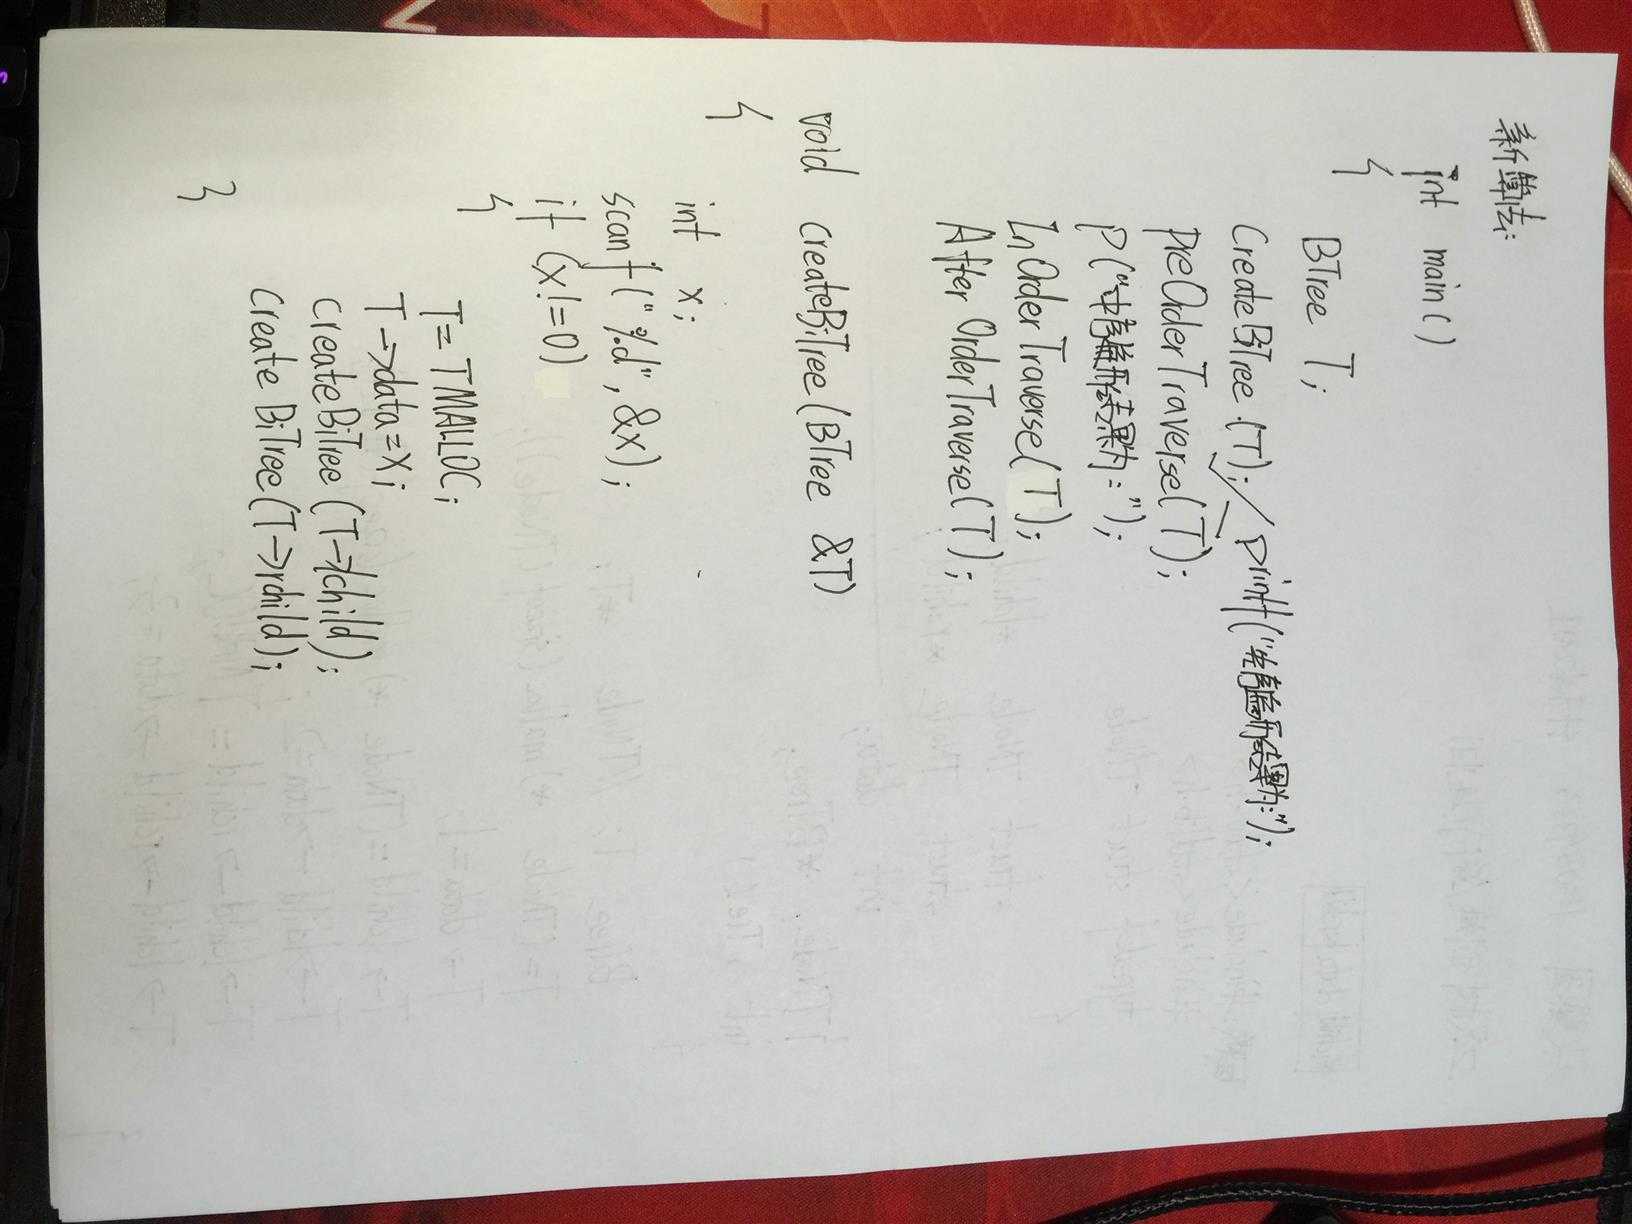 新算法:
int main()
{
BTree T;
CreateBiTree(T); printf("先序遍历结果为:");
PreOrderTraverse(T);
P("中序遍历结果为:");
InOrderTraverse(T);
AfterOrderTraverse(T);
void createBiTree(BTree &T)
{
int x;
scanf("%d",&x);
if (x!=0)
{
T=TMALLOC;
T->data=x;
createBiTree(T->lchild);
create BiTree(T->rchild);
}